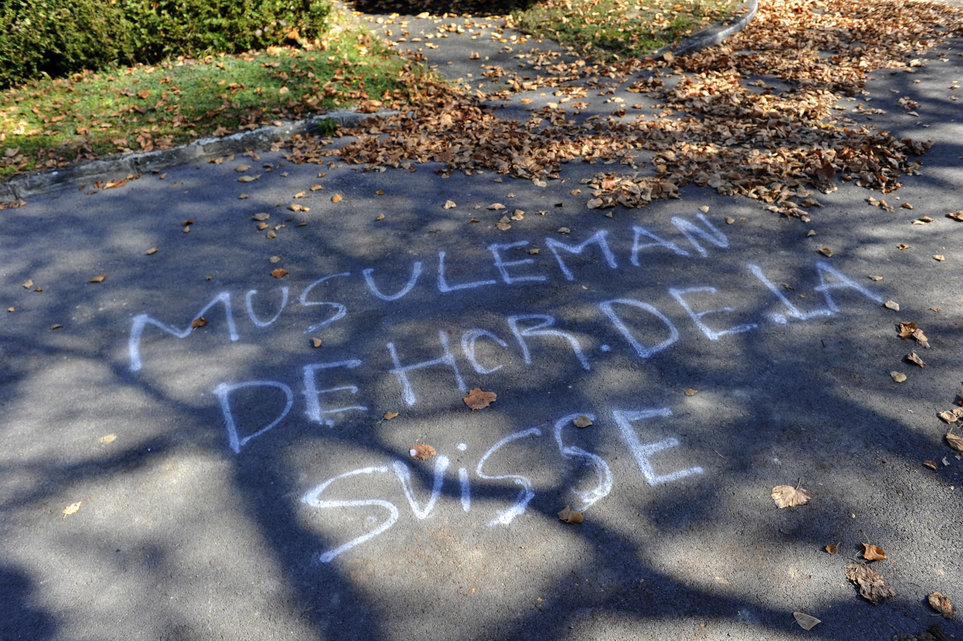 MUSULEMAN
DEHCR.DE.LA
SUISSE